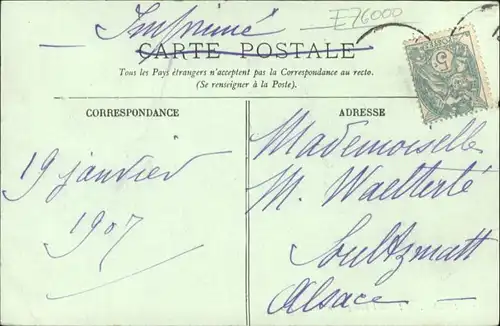 Imprimé
E76000
CARTE POSTALE
Tous les Pays étrangers n'acceptent pas la Correspondance au recto.
(Se renseigner à la Poste).
CORRESPONDANCE
19 janvier
1907
ADRESSE
Mademoiselle
M. Waelterlé
Soultzmatt
Alsace
5